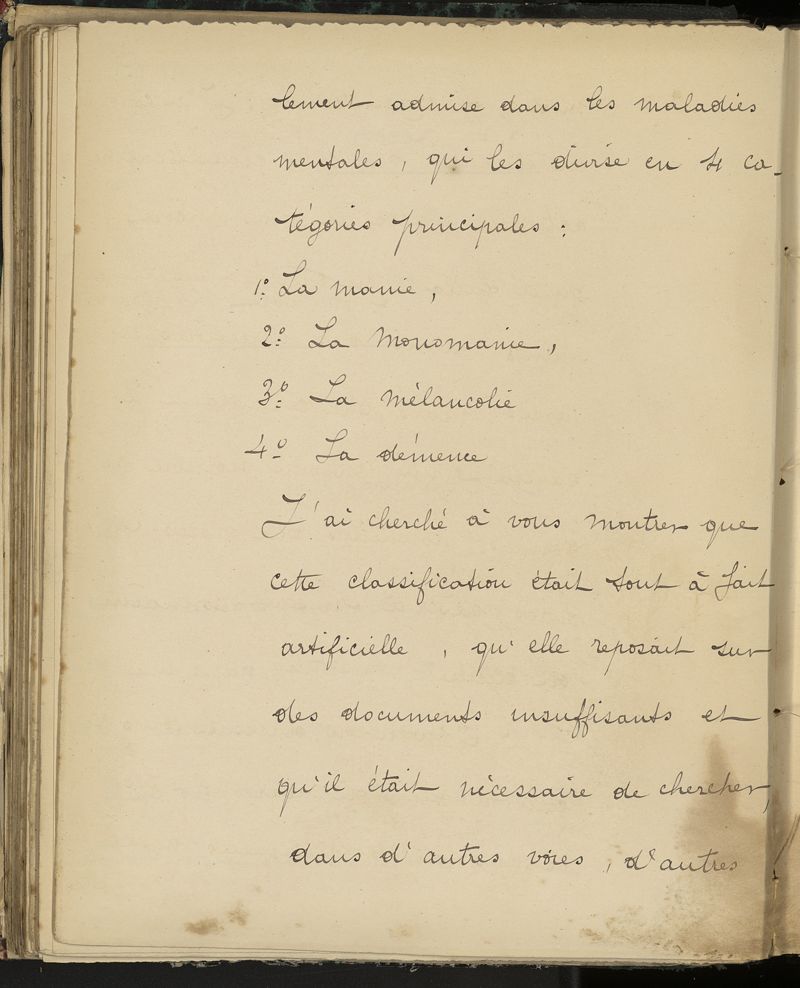 lement admise dans les maladies
mentales, qui les divise en 4 ca-
tégories principales :
1º La manie,
2º La Monomanie,
3º La Mélancolie
4º La démence
J'ai cherché à vous montrer que
cette classification était tout à fait
artificielle, qu'elle reposait sur
des documents insuffisants et
qu'il était nécessaire de chercher,
dans d'autres voies, d'autres